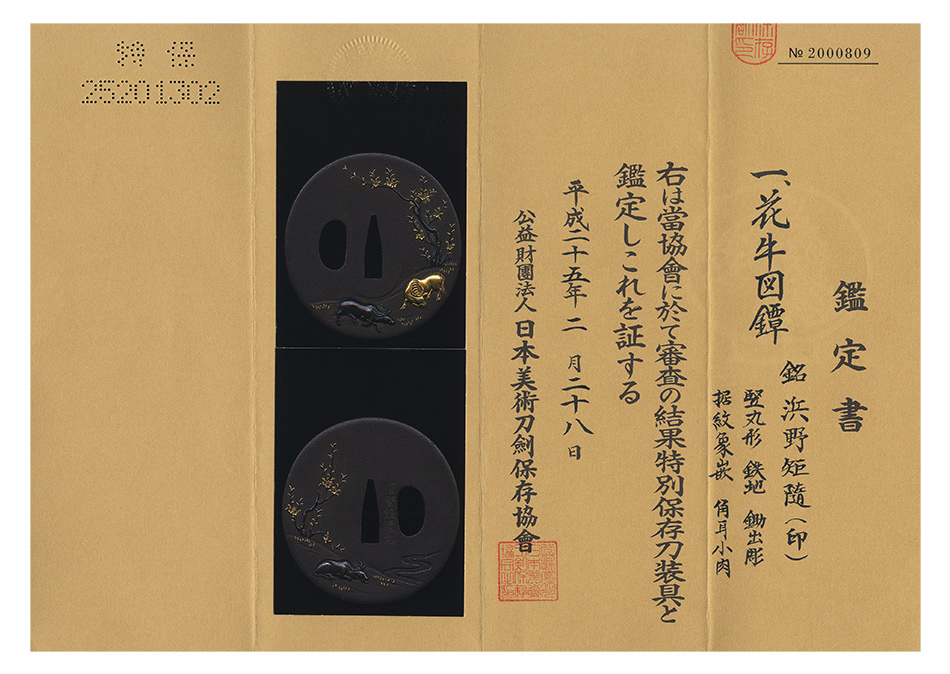 鑑定書
№ 2000809
一、花牛図鐔
銘 浜野矩隨（印）
竪丸形 鉄地 鋤出彫
据紋象嵌 角耳小肉
右は當協會に於て審査の結果特別保存刀装具と
鑑定しこれを証する
平成二十五年 二 月二十八日
公益財團法人 日本美術刀劍保存協會
特 保
25201302